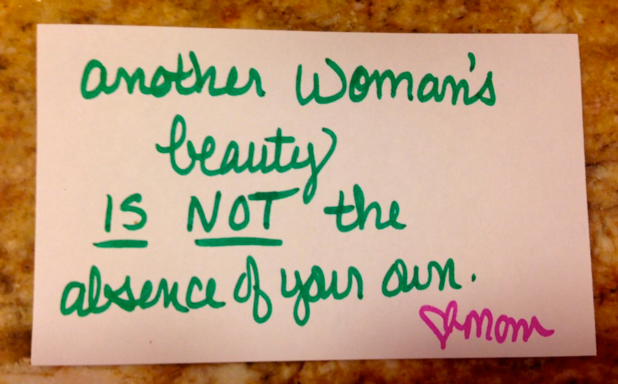 another Woman's
beauty
IS NOT the
absence of your own.
♡Mom